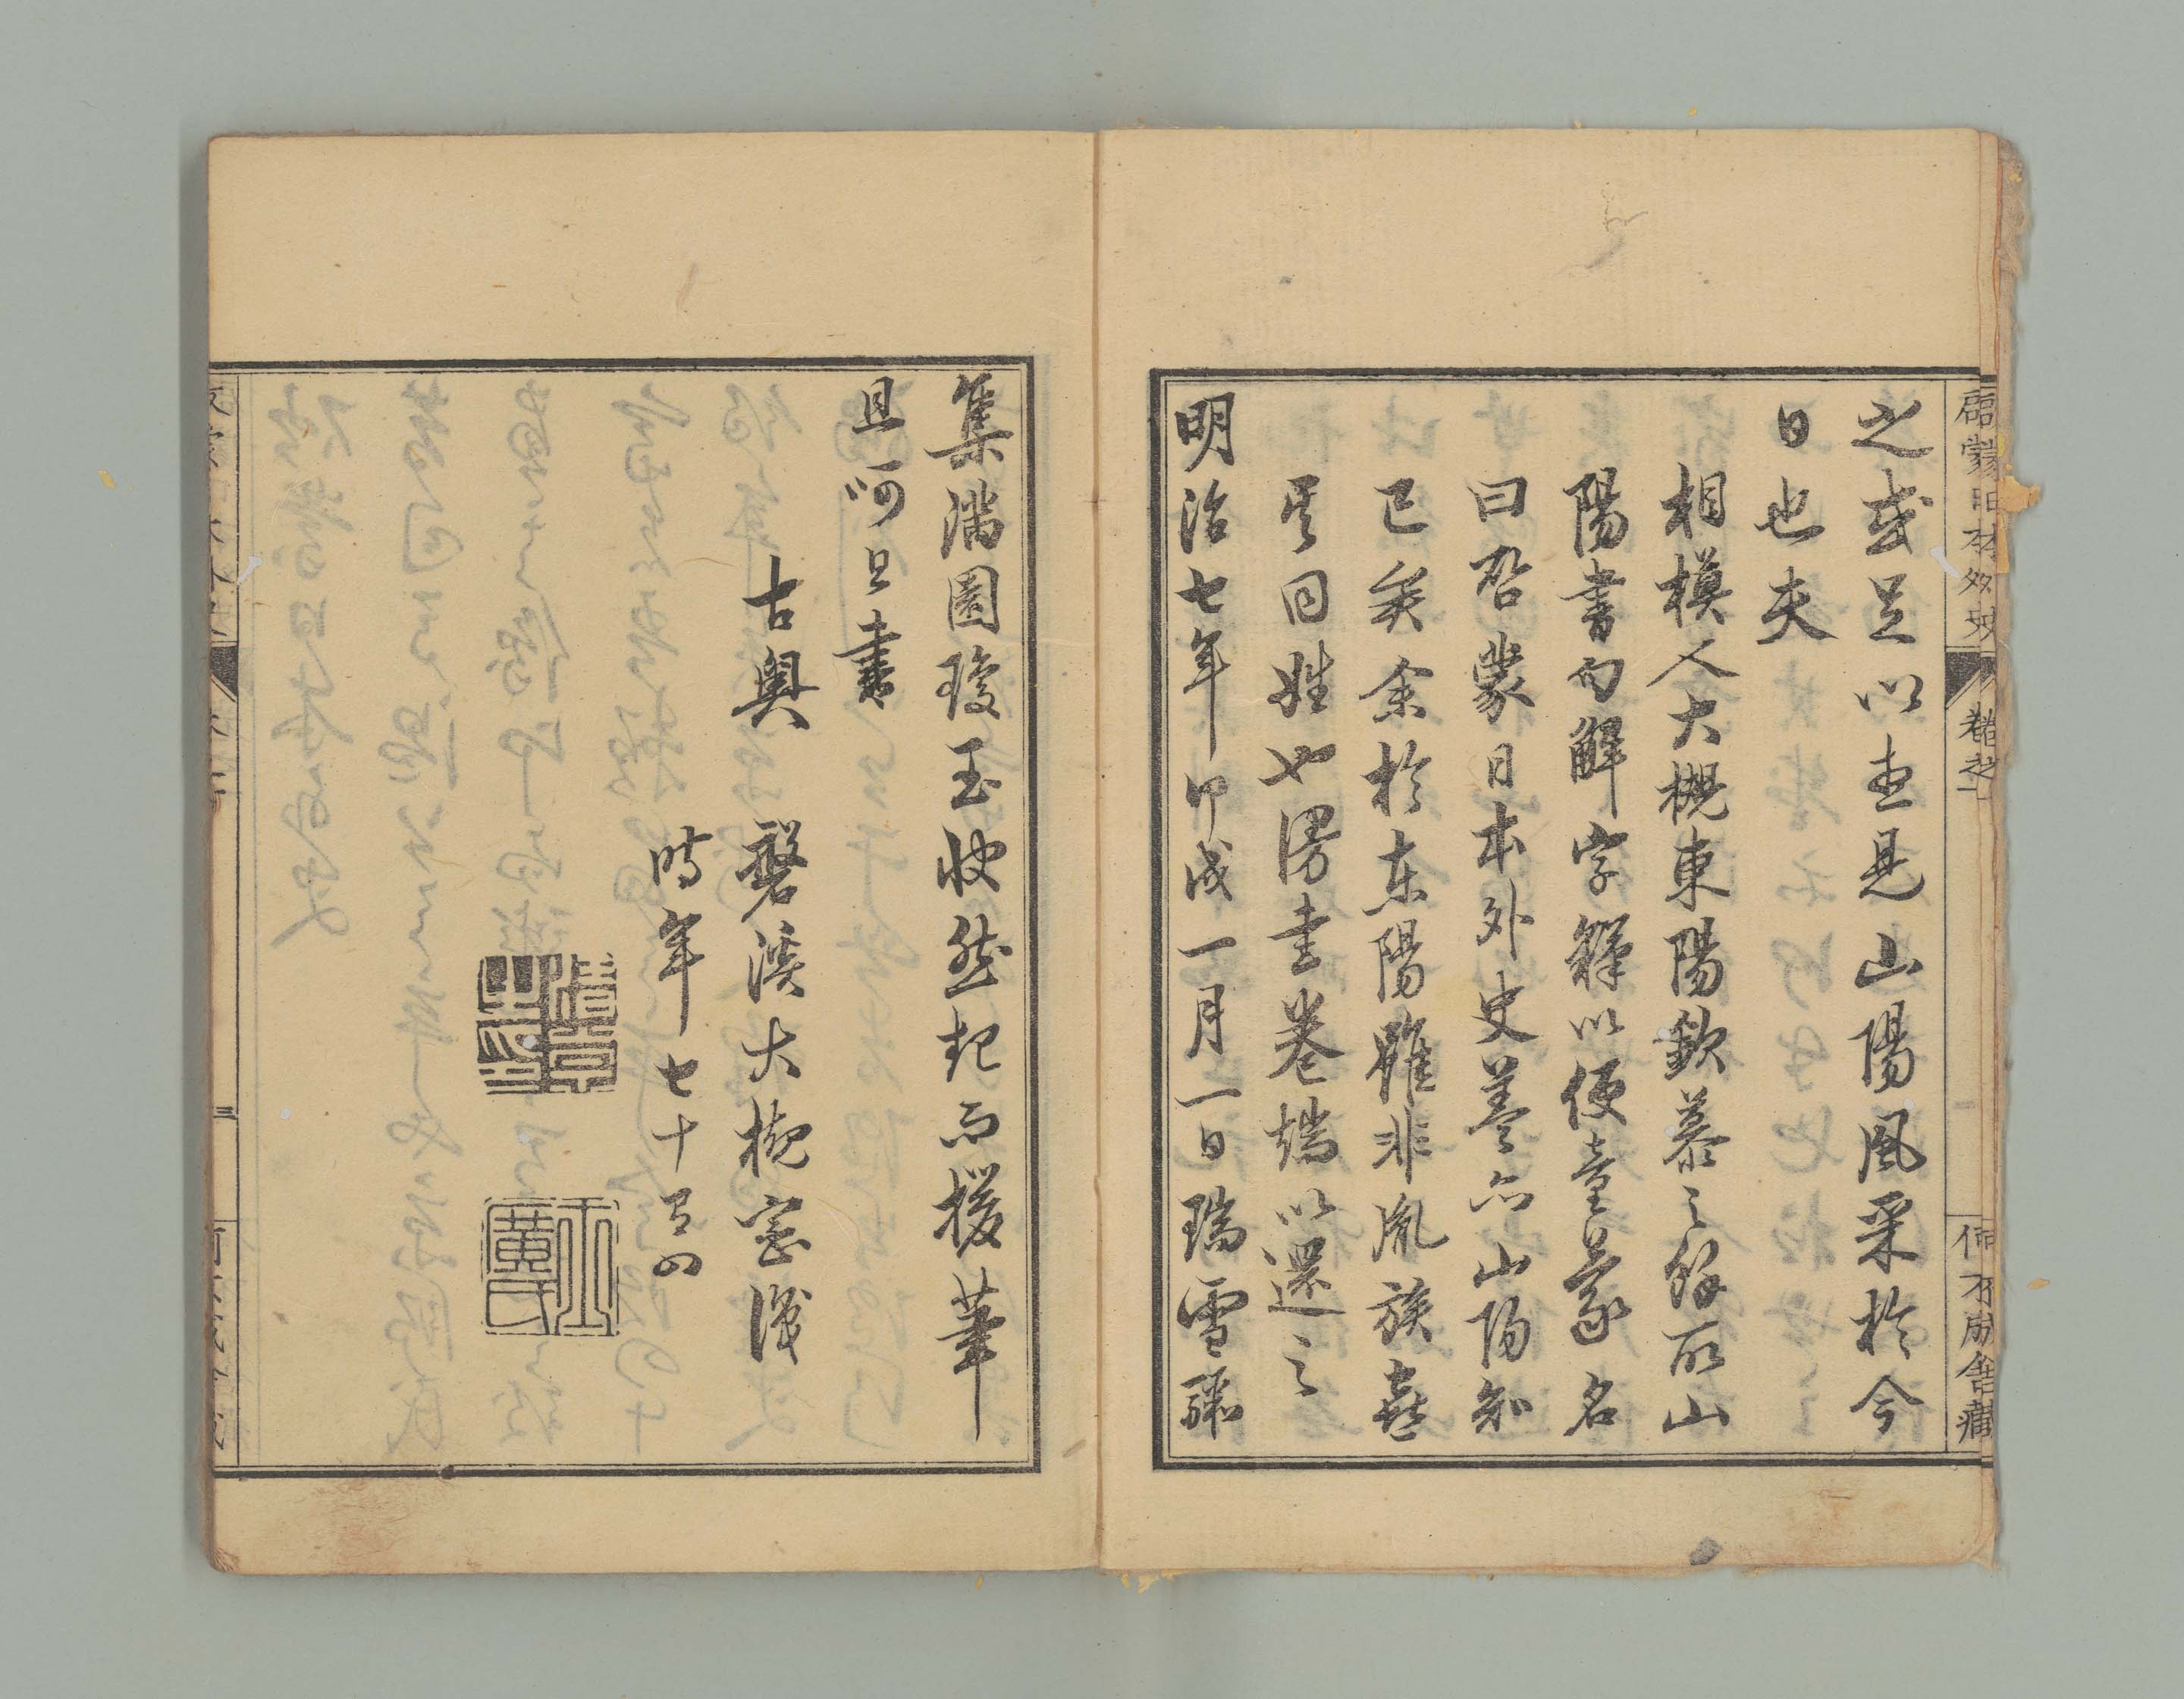 之或足以畫見山陽風采於今
日也夫
相模人大槻東陽欽慕之餘取山
陽書句解字釋以便童蒙名
曰啓蒙日本外史蓋亦山陽知
己矣余於東陽雖非胤族喜
其同姓也漫書卷端以還之
明治七年甲戌一月一日瑞雪驟
集滿園瓊玉快然起而援筆
且呵且書
古奥 磐溪大槻崇識
時年七十有四
卷之一